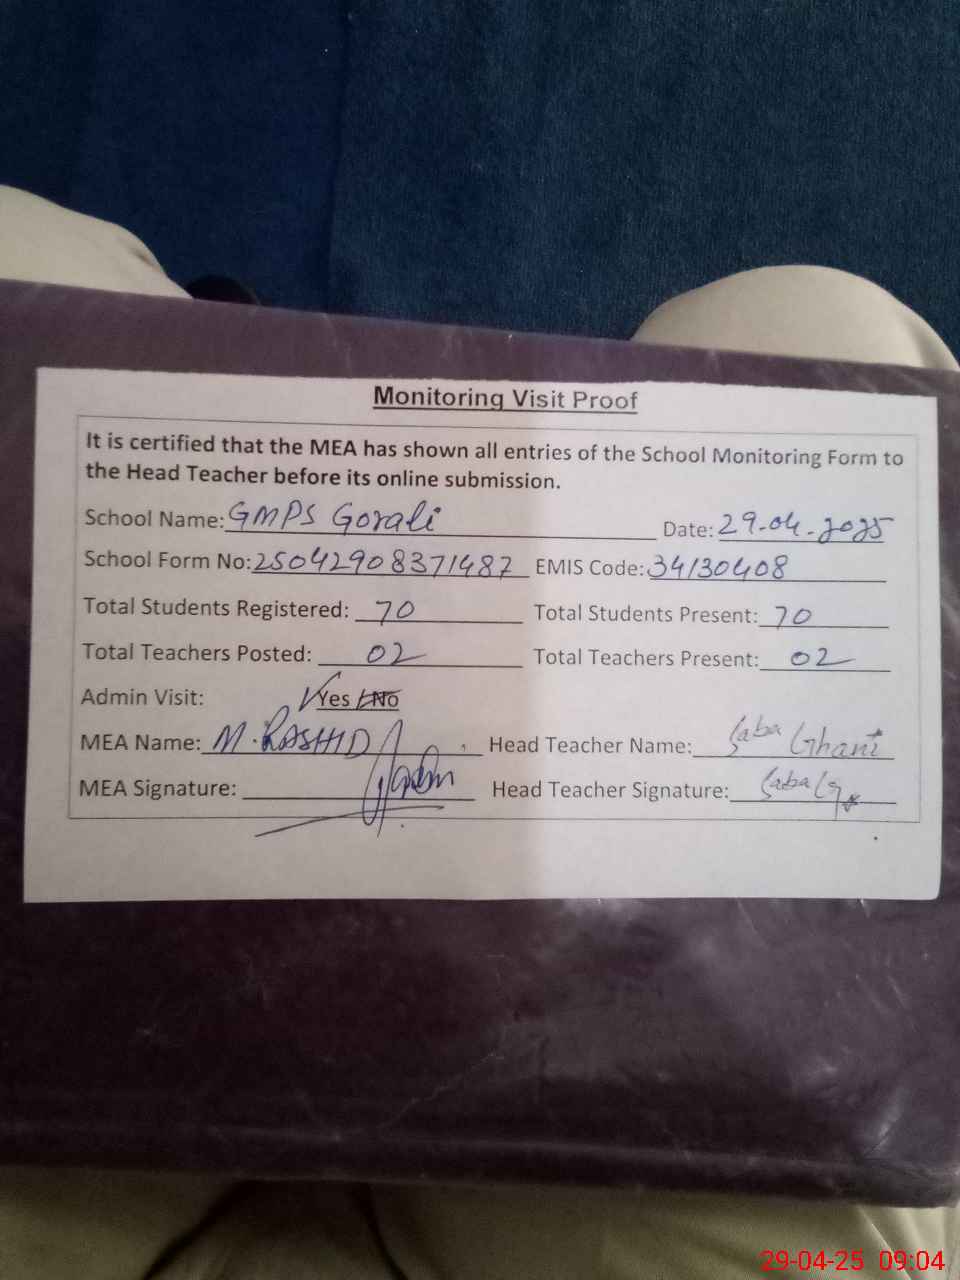 Monitoring Visit Proof
It is certified that the MEA has shown all entries of the School Monitoring Form to
the Head Teacher before its online submission.
School Name: GMPS Gorali Date: 29-04-2025
School Form No: 25042908371487 EMIS Code: 34130408
Total Students Registered: 70 Total Students Present: 70
Total Teachers Posted: 02 Total Teachers Present: 02
Admin Visit: Yes / No
MEA Name: M. RASHID Head Teacher Name: Saba Ghani
MEA Signature: Head Teacher Signature: Saba G
29-04-25 09:04